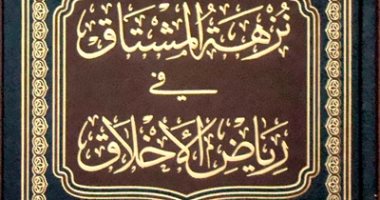 نُزْهَةُ المُشْتَاقِ
فِي
رِيَاضِ الأَخْلَاقِ